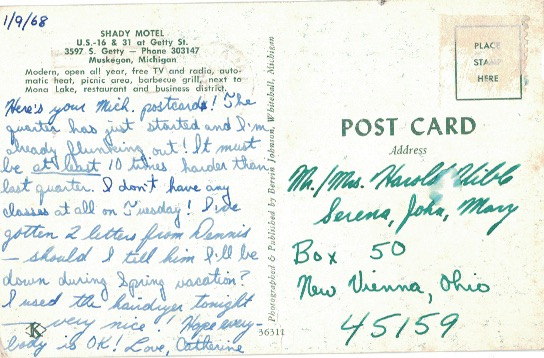 1/9/68
SHADY MOTEL
U.S.-16 & 31 at Getty St.
3597 S. Getty — Phone 303147
Muskegon, Michigan
Modern, open all year, free TV and radio, auto-
matic heat, picnic area, barbecue grill, next to
Mona Lake, restaurant and business district.
Here's your Mich. postcard! The
quarter has just started and I'm
already flunking out! It must
be at least 10 times harder than
last quarter. I don't have any
classes at all on Tuesday! I've
gotten 2 letters from Dennis
— should I tell him I'll be
down during Spring vacation?
I used the hairdryer tonight
— very nice!! Hope every-
body is OK! Love, Catherine
K
Photographed & Published by Bervin Johnson, Whitehall, Michigan
36311
PLACE
STAMP
HERE
POST CARD
Address
Mr./Mrs. Harold Hibb
Serena, John, Mary
Box 50
New Vienna, Ohio
45159